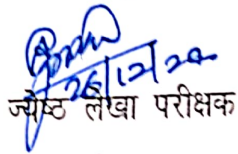 26/12/20
ज्येष्ठ लेखा परीक्षक